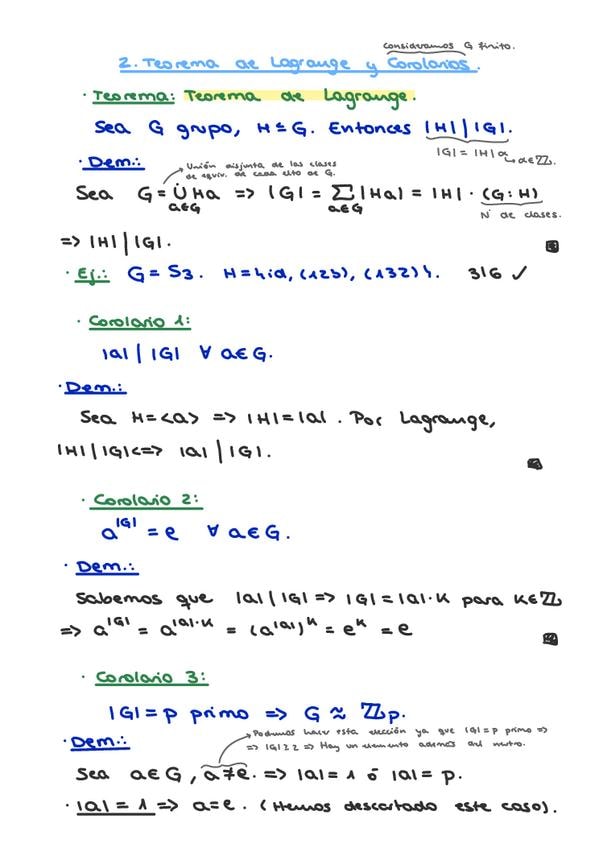 Consideramos G finito.
2. Teorema de Lagrange y Corolarios.
· Teorema: Teorema de Lagrange.
Sea G grupo, H ≤ G. Entonces |H| | |G|.
|G| = |H|α → α∈ℤ.
· Dem.:
Unión disjunta de las clases
de equiv. de cada elto de G.
Sea G = ∪̇ Ha => |G| = ∑ |Ha| = |H| · (G:H)
a∈G a∈G
Nº de clases.
=> |H| | |G|.
· Ej.: G = S3. H = {id, (123), (132)}. 3|6 ✓
· Corolario 1:
|a| | |G| ∀ a∈G.
· Dem.:
Sea H = <a> => |H| = |a|. Por Lagrange,
|H| | |G| <=> |a| | |G|.
· Corolario 2:
a^|G| = e ∀ a∈G.
· Dem.:
Sabemos que |a| | |G| => |G| = |a|·k para k∈ℤ
=> a^|G| = a^|a|·k = (a^|a|)^k = e^k = e
· Corolario 3:
|G| = p primo => G ≈ ℤp.
· Dem.:
Podemos hacer esta elección ya que |G| = p primo =>
=> |G| ≥ 2 => Hay un elemento además del neutro.
Sea a∈G, a≠e. => |a| = 1 ó |a| = p.
· |a| = 1 => a = e. (Hemos descartado este caso).